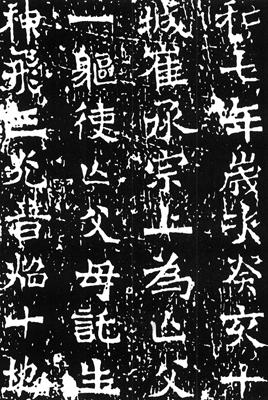 和七年歲次癸亥十
城崔承宗上為亡父
一軀使亡父母託生
神飛三光普焰十地